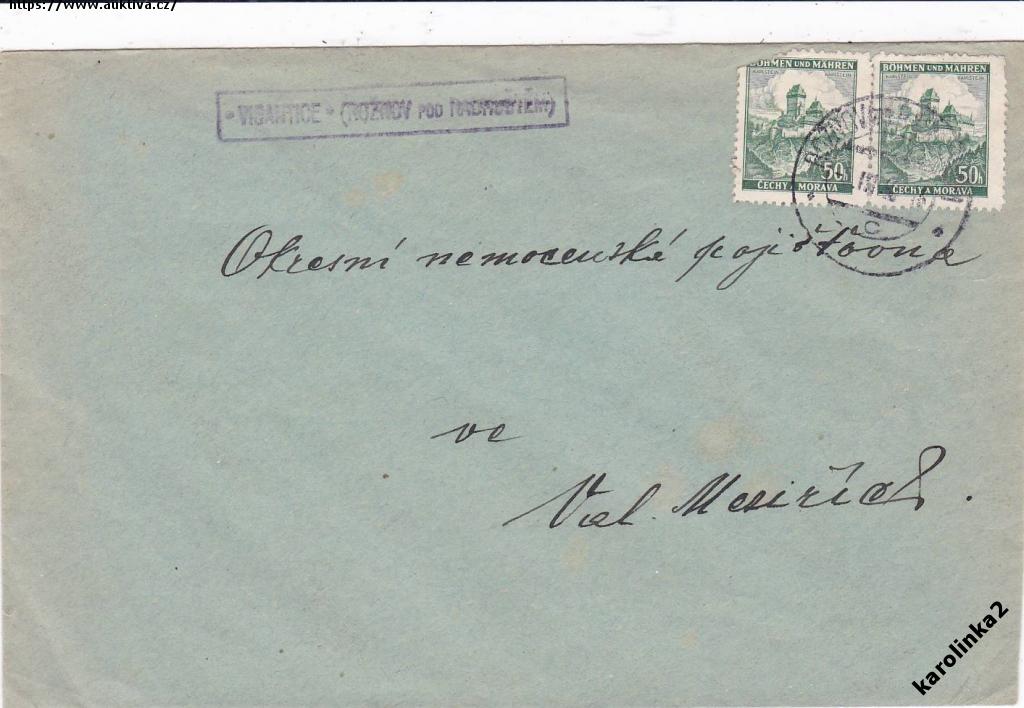 https://www.auktiva.cz/
• VIGANTICE • (ROŽNOV POD RADHOŠTĚM)
BÖHMEN UND MÄHREN
KARLSTEIN KARLŠTEJN
50h
ČECHY A MORAVA
BÖHMEN UND MÄHREN
KARLSTEIN KARLŠTEJN
50h
ČECHY A MORAVA
Okresní nemocenská pojišťovna
ve
Val. Meziříčí.
karolinka2